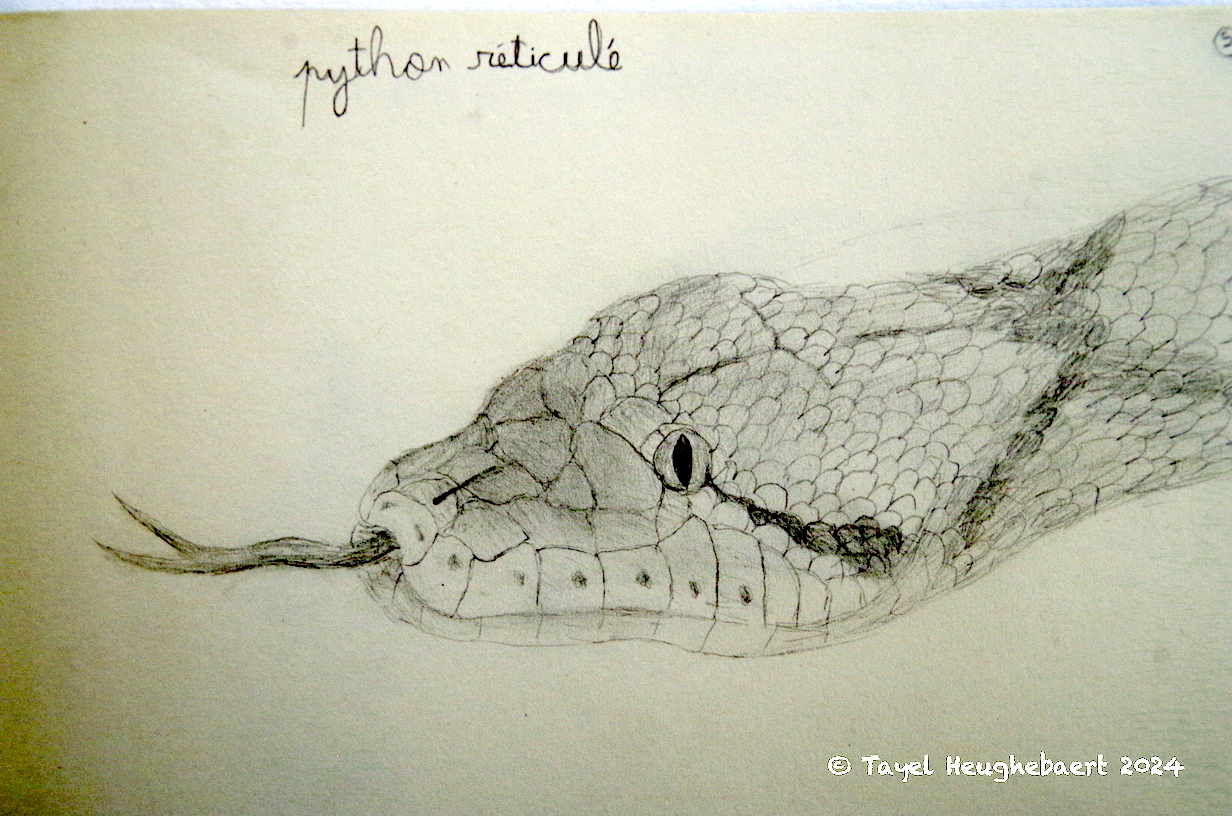 python réticulé
© Tayel Heughebaert 2024